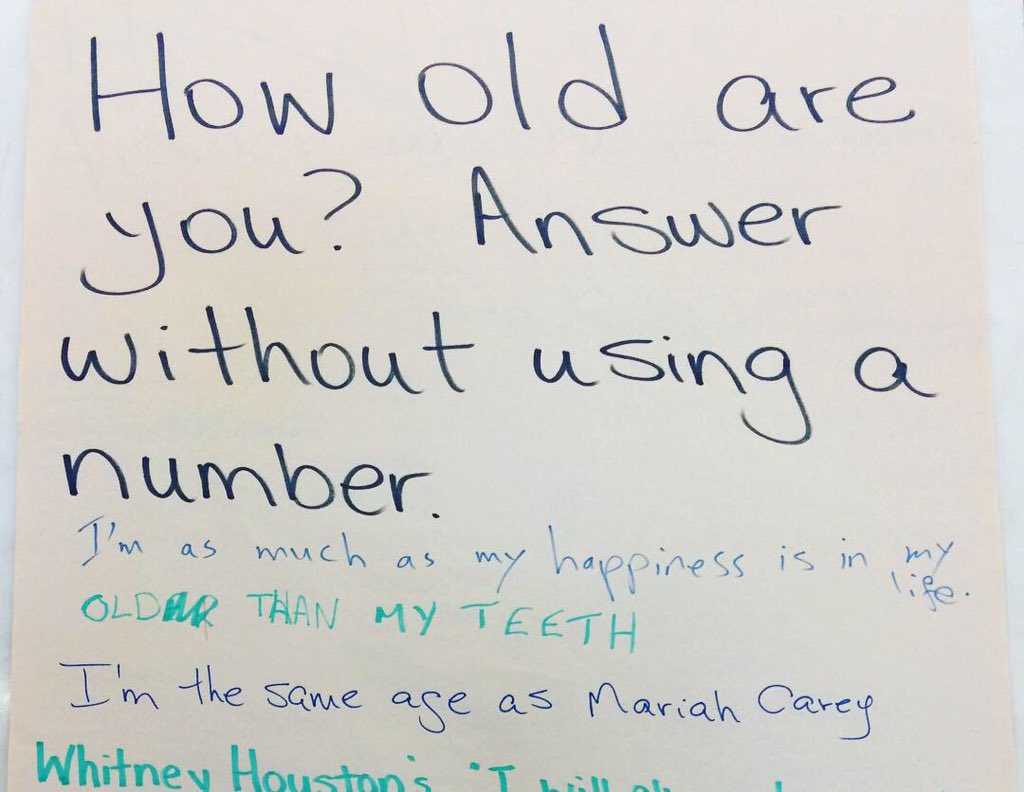 How old are
you? Answer
without using a
number.
I'm as much as my happiness is in my
life.
OLDER THAN MY TEETH
I'm the same age as Mariah Carey
Whitney Houston's "I will